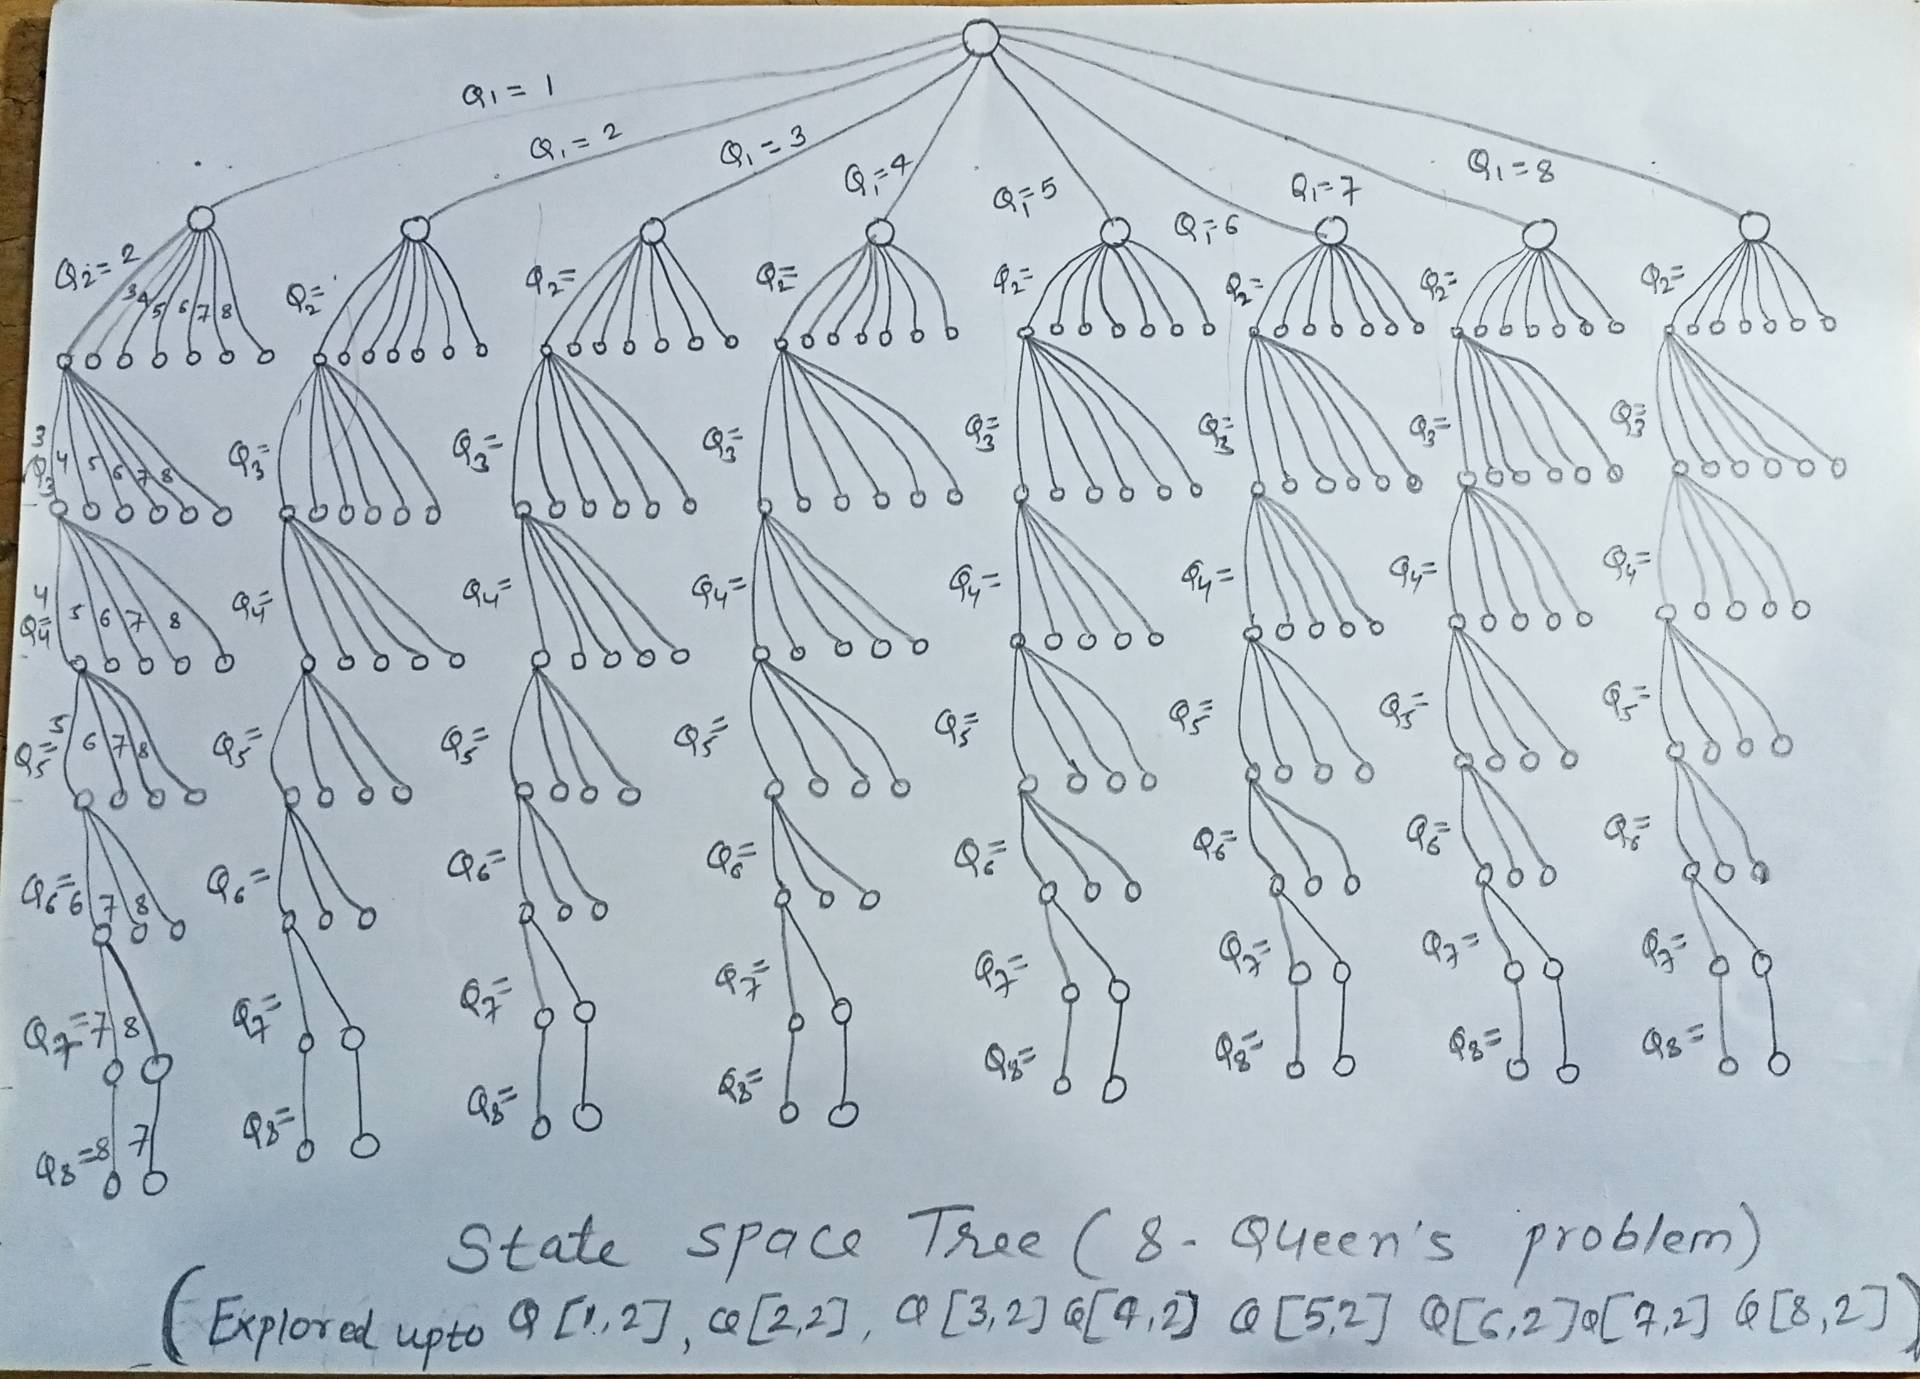 Q1 = 1
Q1 = 2
Q1 = 3
Q1 = 4
Q1 = 5
Q1 = 6
Q1 = 7
Q1 = 8
Q2 = 2 3 4 5 6 7 8
Q2 =
Q2 =
Q2 =
Q2 =
Q2 =
Q2 =
Q2 =
Q3 = 3 4 5 6 7 8
Q3 =
Q3 =
Q3 =
Q3 =
Q3 =
Q3 =
Q3 =
Q4 = 4 5 6 7 8
Q4 =
Q4 =
Q4 =
Q4 =
Q4 =
Q4 =
Q4 =
Q5 = 5 6 7 8
Q5 =
Q5 =
Q5 =
Q5 =
Q5 =
Q5 =
Q5 =
Q6 = 6 7 8
Q6 =
Q6 =
Q6 =
Q6 =
Q6 =
Q6 =
Q6 =
Q7 = 7 8
Q7 =
Q7 =
Q7 =
Q7 =
Q7 =
Q7 =
Q7 =
Q8 = 8 7
Q8 =
Q8 =
Q8 =
Q8 =
Q8 =
Q8 =
Q8 =
State space Tree ( 8 - Queen's problem)
(Explored upto Q [1,2], Q [2,2], Q [3,2] Q[4,2] Q [5,2] Q[6,2] Q[7,2] Q [8,2])